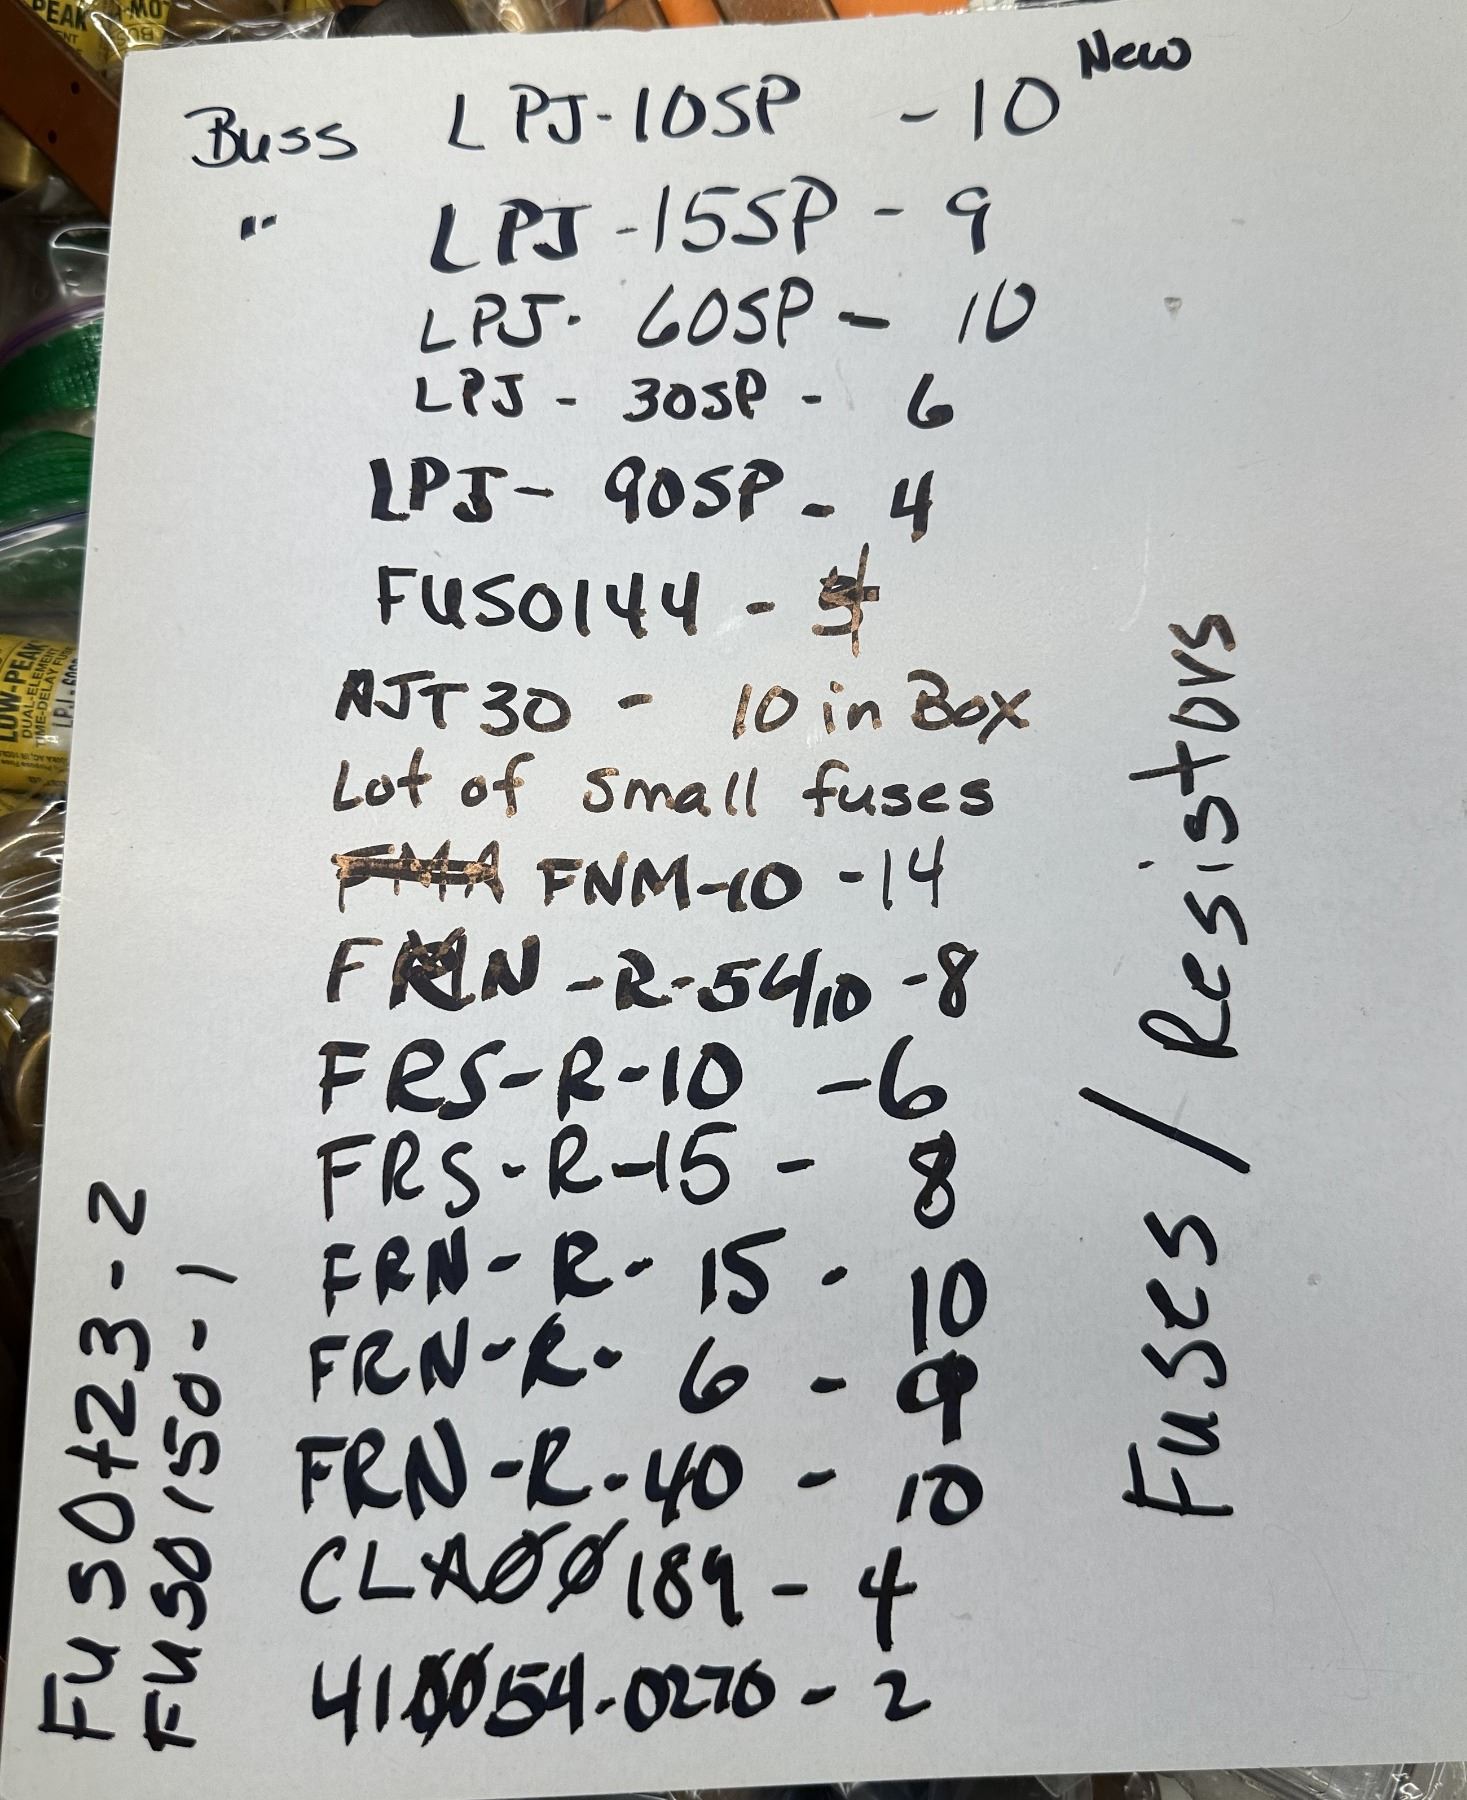 New
Buss LPJ-10SP - 10
" LPJ-15SP - 9
LPJ- 60SP - 10
LPJ - 30SP - 6
LPJ- 90SP - 4
FUS0144 -
AJT30 - 10 in Box
Lot of small fuses
FNM-10 -14
FRN -R-54/10 -8
FRS-R-10 -6
FRS-R-15 - 8
FRN-R- 15 - 10
FRN-R- 6 - 9
FRN-R-40 - 10
CLA00189 - 4
410054-0270 - 2
Fuses / Resistors
FUS0+23-2
FUS0150-1
LOW-PEAK
DUAL-ELEMENT
TIME-DELAY FUSE